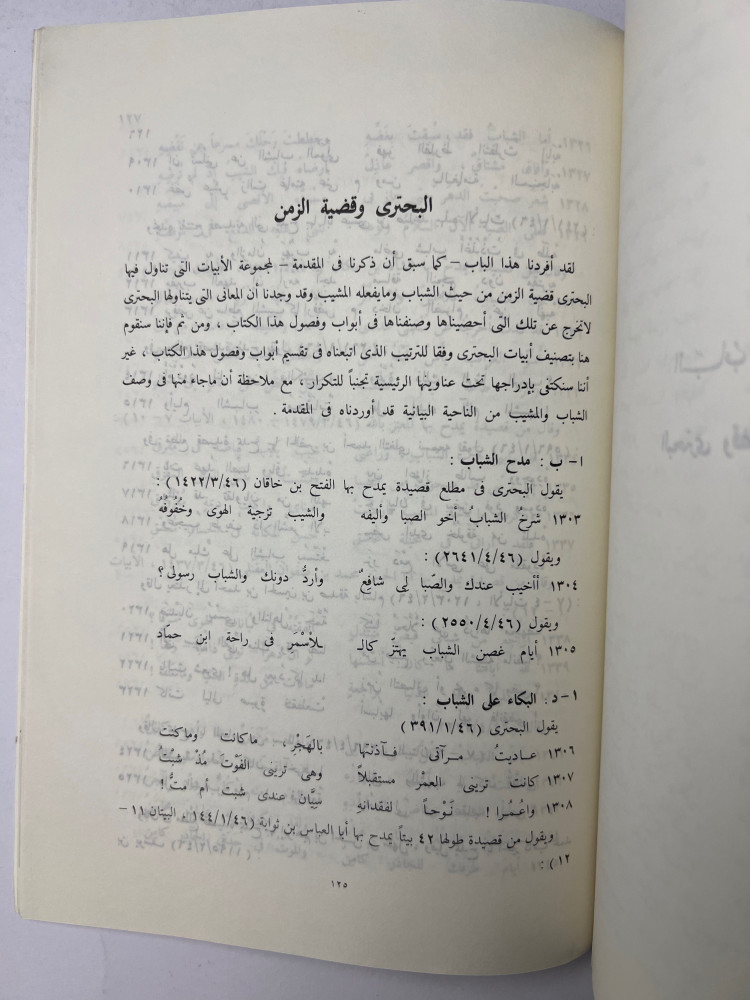 البحترى وقضية الزمن
لقد أفردنا هذا الباب – كما سبق أن ذكرنا فى المقدمة – لمجموعة الأبيات التى تناول فيها
البحترى قضية الزمن من حيث الشباب ومايفعله المشيب وقد وجدنا أن المعانى التى يتناولها البحترى
لاتخرج عن تلك التى أحصيناها وصنفناها فى أبواب وفصول هذا الكتاب ، ومن ثم فإننا سنقوم
هنا بتصنيف أبيات البحترى وفقا للترتيب الذى اتبعناه فى تقسيم أبواب وفصول هذا الكتاب ، غير
أننا سنكتفى بإدراجها تحت عناوينها الرئيسية تجنباً للتكرار ، مع ملاحظة أن ماجاء منها فى وصف
الشباب والمشيب من الناحية البيانية قد أوردناه فى المقدمة .
ا – ب : مدح الشباب :
يقول البحترى فى مطلع قصيدة يمدح بها الفتح بن خاقان (١٤٢٢/٣/٤٦) :
١٣٠٣ شرخُ الشبابُ أخو الصبا وأليفه والشيب تزجية الهوى وخُفُوفُهُ
ويقول (٢٦٤١/٤/٤٦) :
١٣٠٤ أأخيب عندك والصّبا لى شافِعٌ وأردُّ دونك والشباب رسولى ؟
ويقول (٢٥٥٠/٤/٤٦) :
١٣٠٥ أيام غصن الشباب يهتزّ كالـ ـلأسْمَرِ فى راحة ابن حمّاد
ا – د : البكاء على الشباب :
يقول البحترى (٣٩١/١/٤٦)
١٣٠٦ عـاديتُ مـرآتى فـآذنتُها بالهَجْرِ ، ماكانت وماكنت
١٣٠٧ كانت ترينى العمْرَ مستقبلاً وهى ترينى الفَوْتَ مُذْ شبْتُ
١٣٠٨ واعُـمُرا ! نَـوْحـاً لفقدانهِ سِيَّان عندى شبت أم متُّ !
ويقول من قصيدة طولها ٤٢ بيتاً يمدح بها أبا العباس بن ثوابة (١٤٤/١/٤٦ ، البيتان ١١ –
١٢ ) :
١٢٥